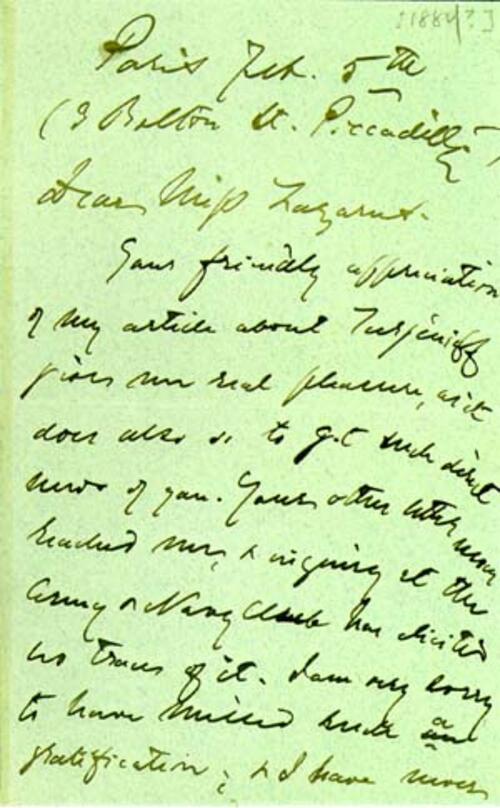 [1884?]
Paris Feb. 5th
(3 Bolton St. Piccadilly)
Dear Miss Lazarus.
Your friendly appreciation
of my article about Turgénieff
gives me real pleasure, as it
does also to get such direct
news of you. Your other letter never
reached me, & inquiry at the
Army & Navy Club has elicited
no trace of it. I am very sorry
to have missed such a
gratification; & I have never